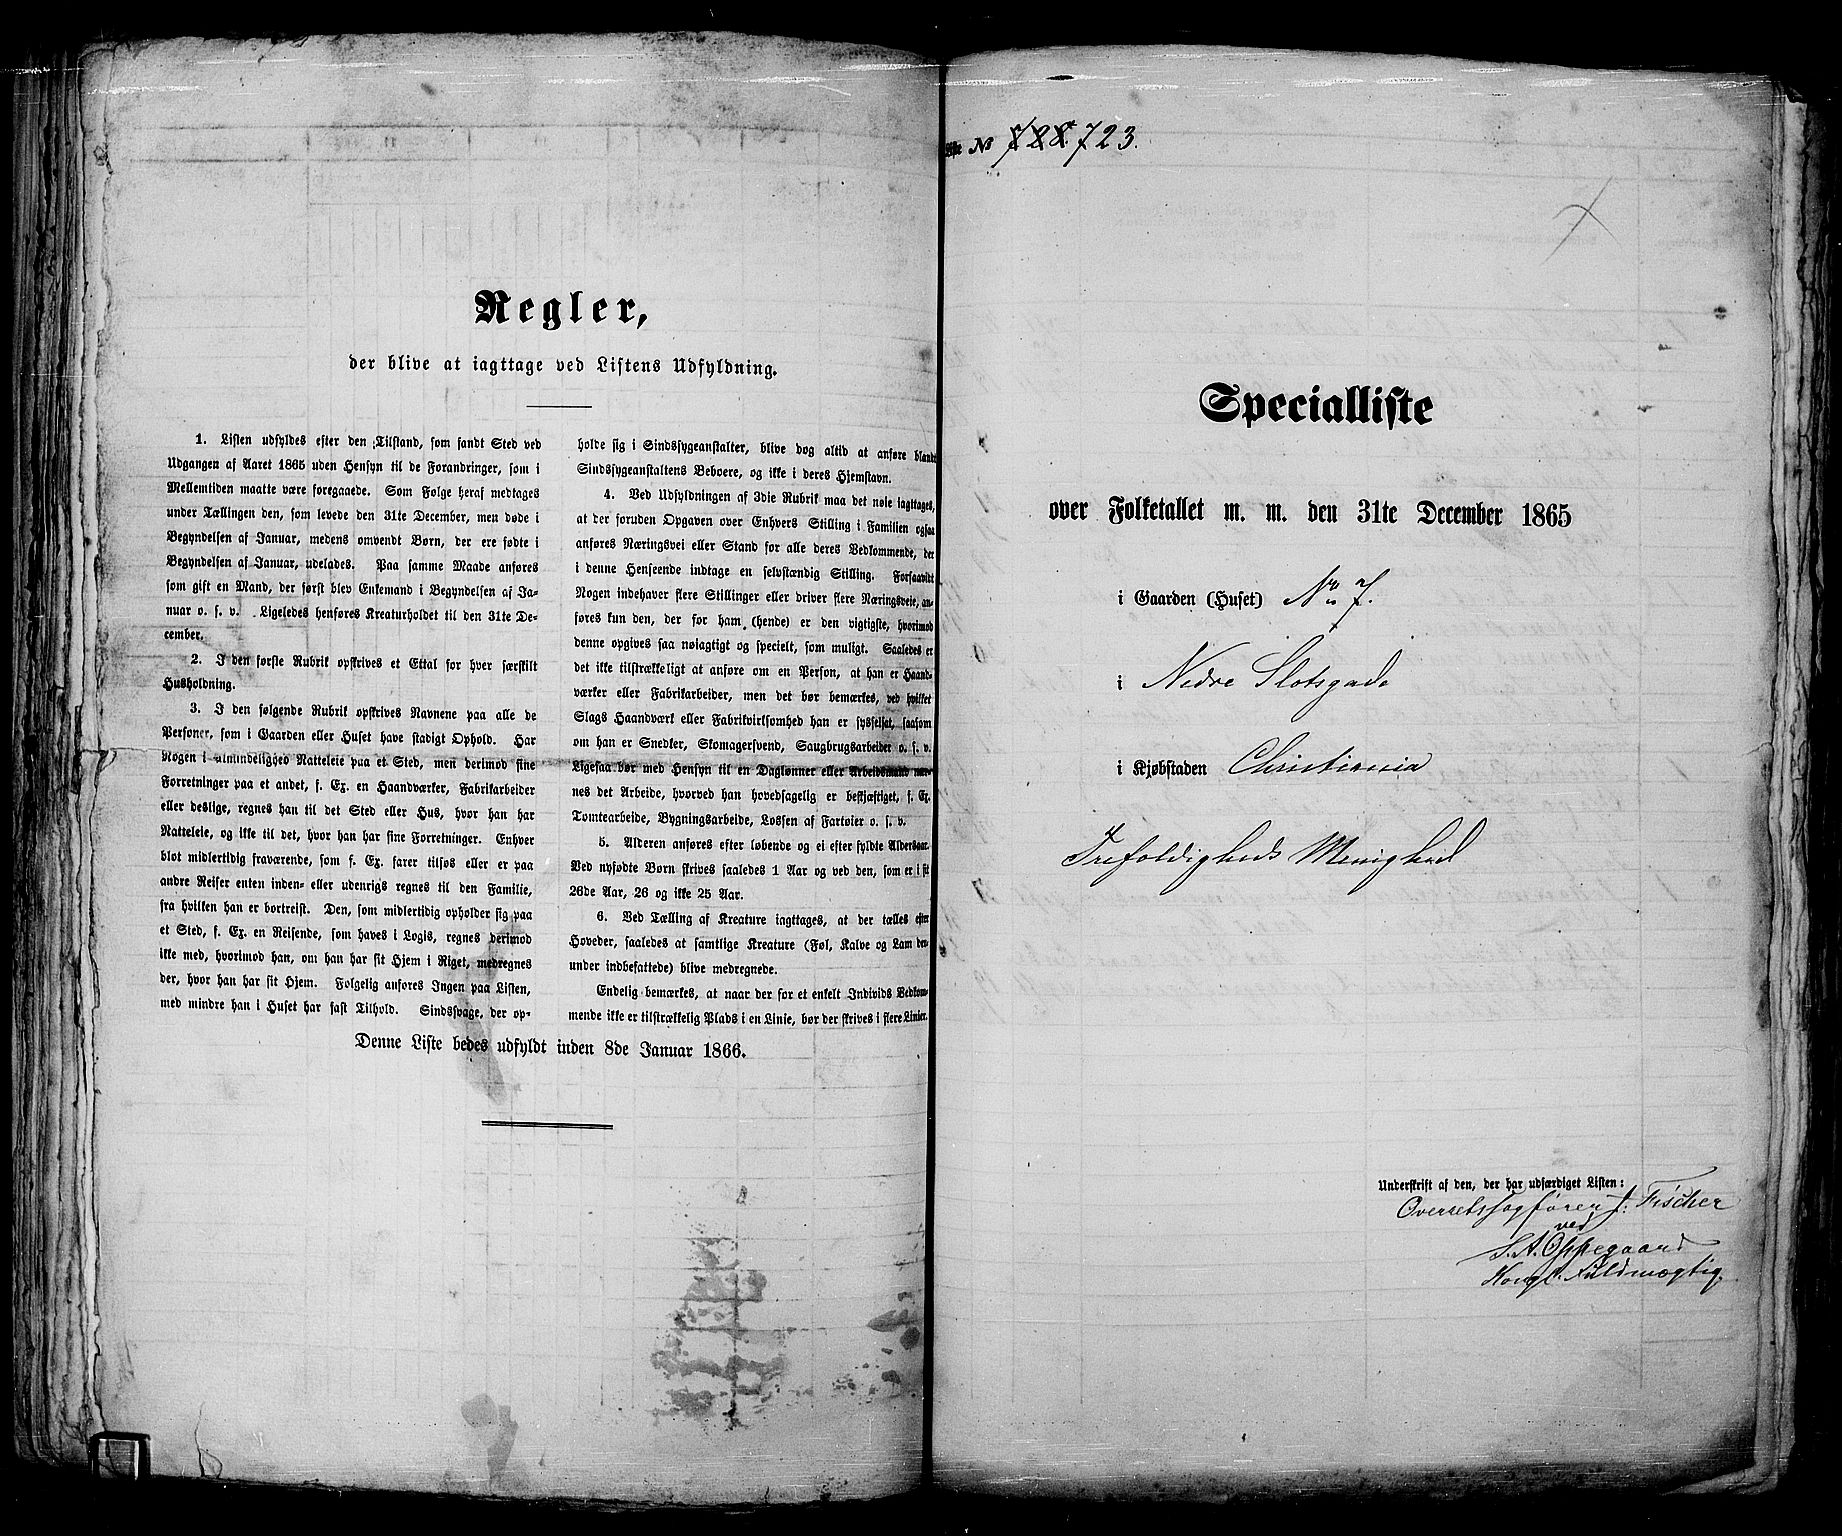 Regler,
der blive at iagttage ved Listens Udfyldning.
1. Listen udfyldes efter den Tilstand, som fandt Sted ved
Udgangen af Aaret 1865 uden Hensyn til de Forandringer, som i
Mellemtiden maatte være foregaaede. Som Følge heraf medtages
under Tællingen den, som levede den 31te December, men døde i
Begyndelsen af Januar, medens omvendt Børn, der ere fødte i
Begyndelsen af Januar, udelades. Paa samme Maade anføres
som gift en Mand, der først blev Enkemand i Begyndelsen af Ja-
nuar o. s. v. Ligeledes henføres Kreaturholdet til den 31te De-
cember.
2. I den første Rubrik opskrives et Ettal for hver særskilt
Husholdning.
3. I den følgende Rubrik opskrives Navnene paa alle de
Personer, som i Gaarden eller Huset have stadigt Ophold. Har
Nogen i almindelighed Natteleie paa et Sted, men derimod sine
Forretninger paa et andet, f. Ex. en Haandværker, Fabrikarbeider
eller deslige, regnes han til det Sted eller Hus, hvor han har
Natteleie, og ikke til det, hvor han har sine Forretninger. Enhver
blot midlertidig fraværende, som f. Ex. farer tilsøs eller er paa
andre Reiser enten inden- eller udenrigs regnes til den Familie,
fra hvilken han er bortreist. Den, som midlertidig opholder sig paa
et Sted, f. Ex. en Reisende, som haves i Logis, regnes derimod
ikke med, hvorimod han, om han har sit Hjem i Riget, medregnes
der, hvor han har sit Hjem. Følgelig anføres Ingen paa Listen,
med mindre han i Huset har fast Tilhold. Sindssvage, der op-
holde sig i Sindssygeanstalter, blive dog altid at anføre blandt
Sindssygeanstaltens Beboere, og ikke i deres Hjemstavn.
4. Ved Udfyldningen af 3die Rubrik maa det nøie iagttages,
at der foruden Opgaven over Enhvers Stilling i Familien ogsaa
anføres Næringsvei eller Stand for alle deres Vedkommende, der
i denne Henseende indtage en selvstændig Stilling. Forsaavidt
Nogen indehaver flere Stillinger eller driver flere Næringsveie, an-
føres kun den, der for ham (hende) er den vigtigste, hvorimod
denne opgives saa nøiagtigt og specielt, som muligt. Saaledes er
det ikke tilstrækkeligt at anføre om en Person, at han er Haand-
værker eller Fabrikarbeider, men det bør bemærkes, ved hvilket
Slags Haandværk eller Fabrikvirksomhed han er sysselsat, saasom
om han er Snedker, Skomagersvend, Saugbrugsarbeider o. s. v.
Ligesaa bør med Hensyn til en Daglønner eller Arbeidsmand næv-
nes det Arbeide, hvorved han hovedsagelig er beskjæftiget, f. Ex.
Tomtearbeide, Bygningsarbeide, Lossen af Fartøier o. s. v.
5. Alderen anføres efter løbende og ei efter fyldte Aldersaar.
Ved nyfødte Børn skrives saaledes 1 Aar og ved den, som er i sit
26de Aar, 26 og ikke 25 Aar.
6. Ved Tælling af Kreature iagttages, at der tælles efter
Hoveder, saaledes at samtlige Kreature (Føl, Kalve og Lam der-
under indbefattede) blive medregnede.
Endelig bemærkes, at naar der for et enkelt Individs Vedkom-
mende ikke er tilstrækkelig Plads i en Linie, bør der skrives i flere Linier.
Denne Liste bedes udfyldt inden 8de Januar 1866.
Liste No 723.
Specialliste
over Folketallet m. m. den 31te December 1865
i Gaarden (Huset) No 7.
i Nedre Slotsgade
i Kjøbstaden Christiania
Trefoldigheds Menighed
Underskrift af den, der har udfærdiget Listen:
Overretssagfører J. Fischer
ved
S. A. Oppegaard
Kongl. Fuldmægtig.